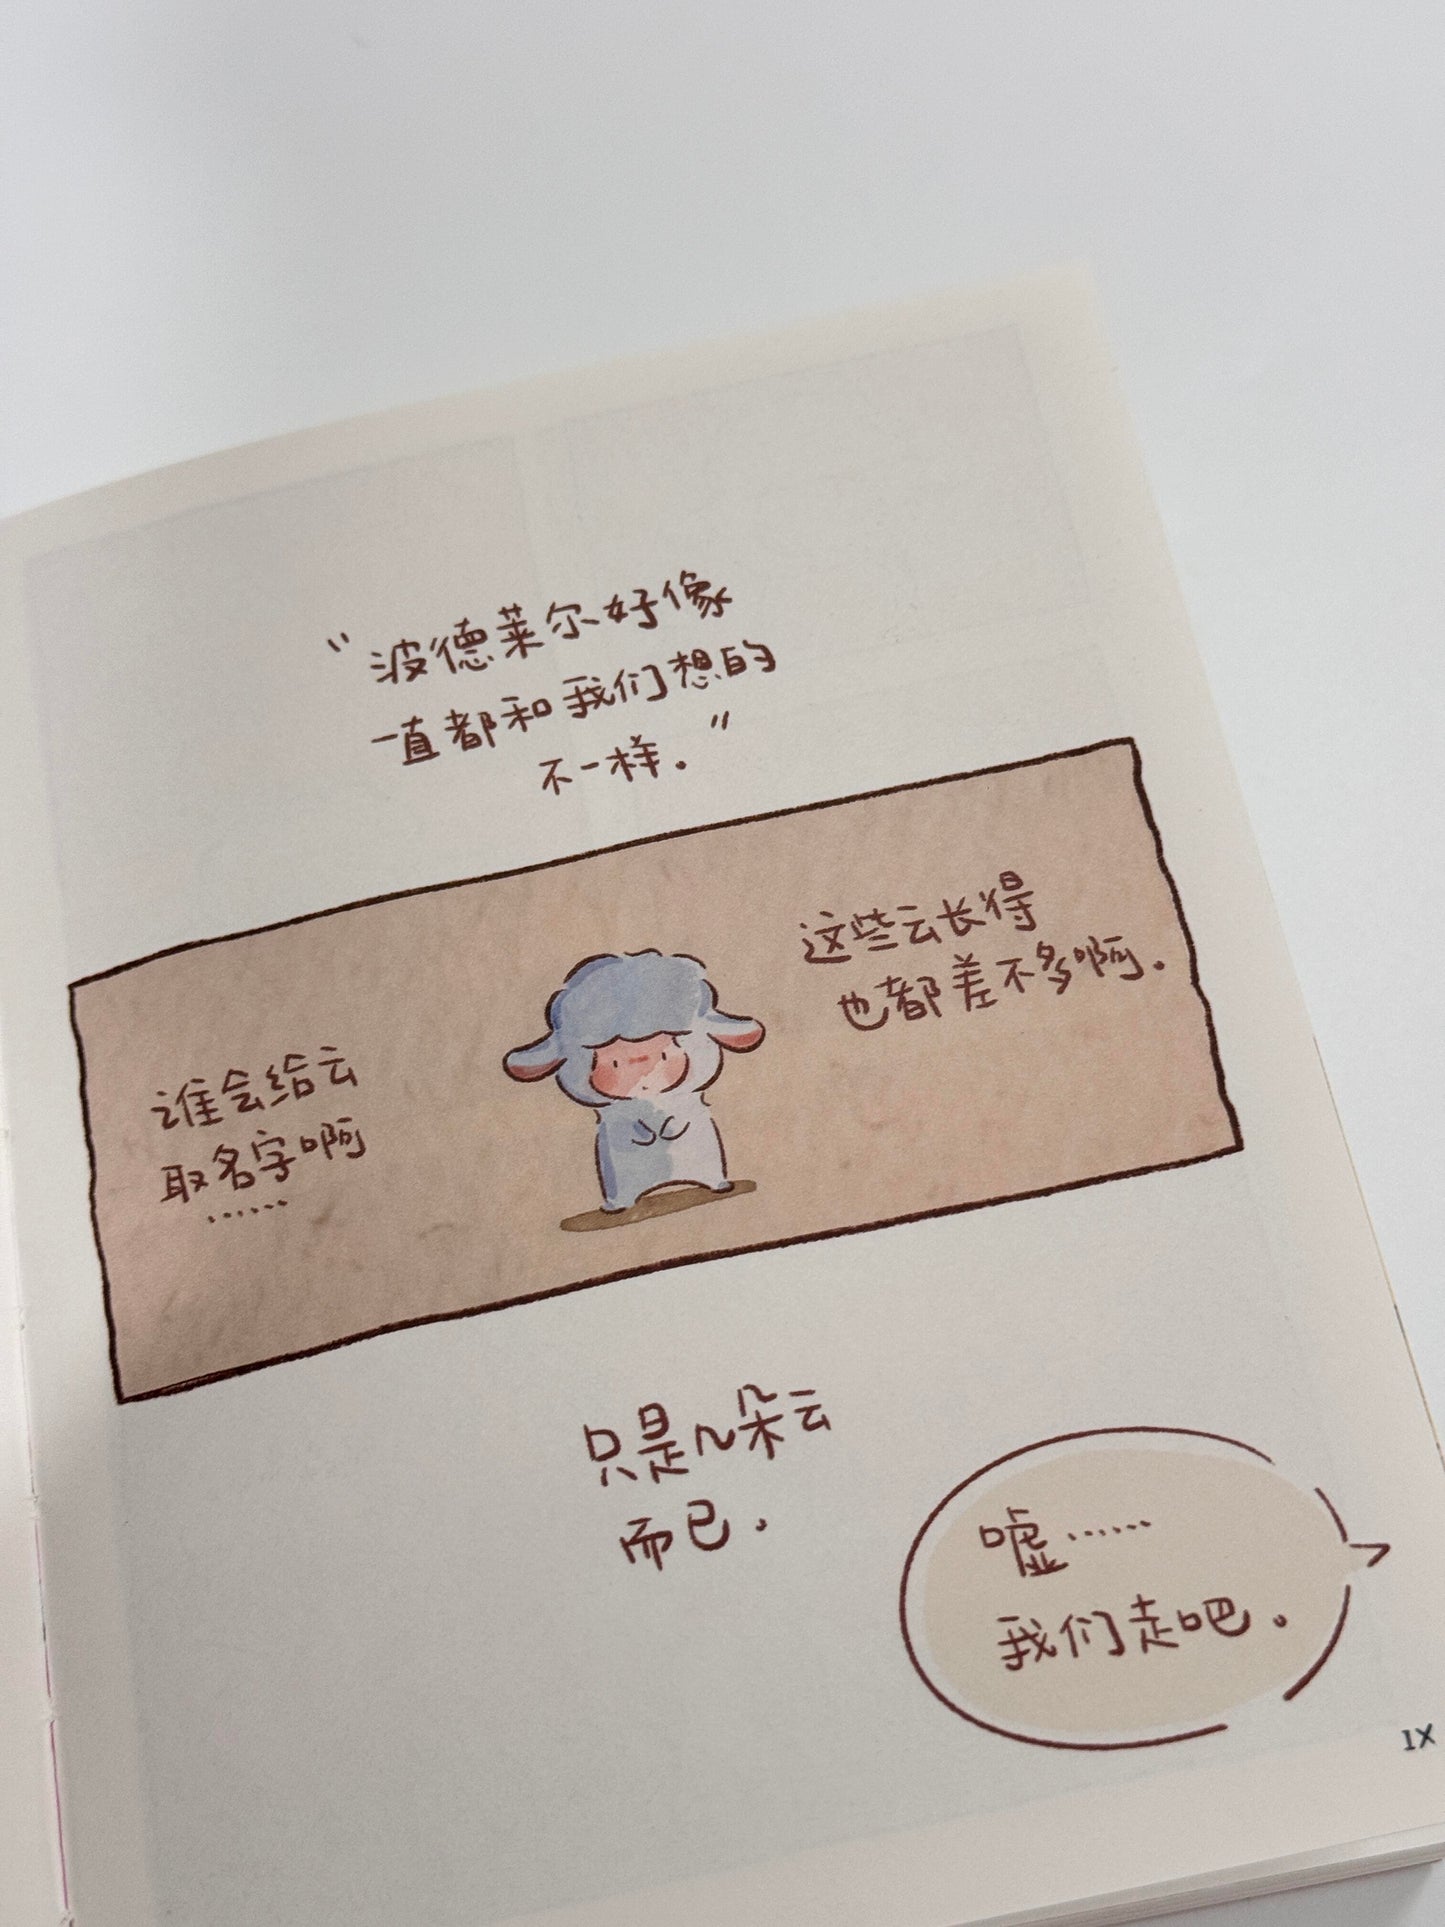 “波德莱尔好像
一直都和我们想的
不一样。”
谁会给云
取名字啊
……
这些云长得
也都差不多啊。
只是几朵云
而已。
嘘……
我们走吧。
IX